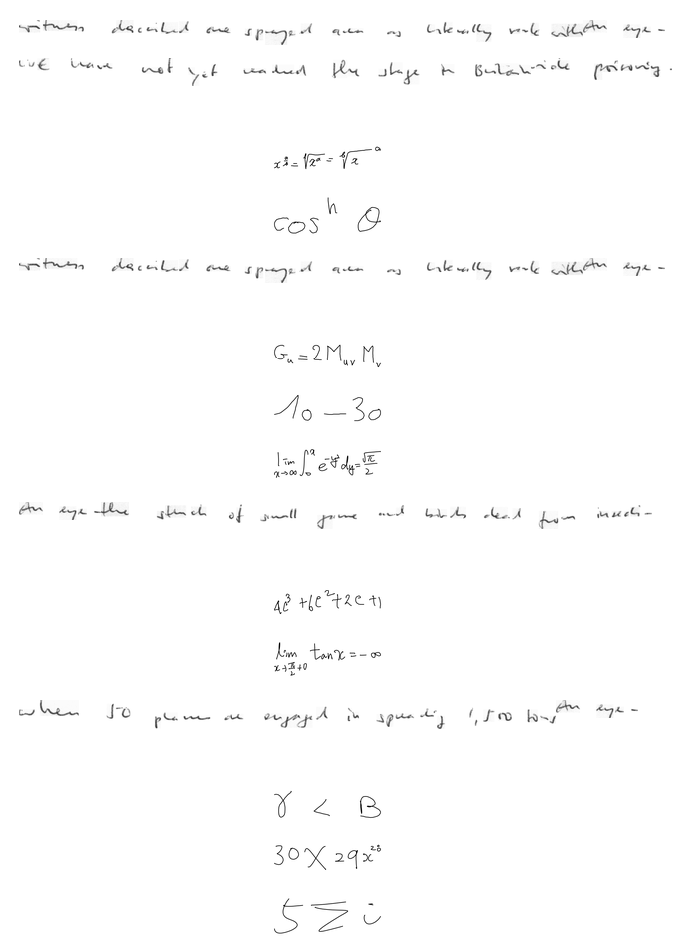 witness described one sprayed area as literally reek with An eye-
we have not yet reached the stage in Britain - cide poisoning.
x^{\frac{a}{b}} = \sqrt[b]{x^a} = \sqrt[b]{x}^a
cos^h θ
witness described one sprayed area as literally reek with An eye-
G_u = 2 M_{uv} M_v
10 - 30
\lim_{x→∞} \int_0^x e^{-y^2} dy = \frac{\sqrt{π}}{2}
An eye - the stench of small game and birds dead from insecti-
4c^3 + 6c^2 + 2c + 1
\lim_{x→\frac{π}{2}+0} tan x = -∞
when 50 planes are engaged in spreading 1,500 tons An eye-
γ < B
30 X 29x^{28}
5 Σ i